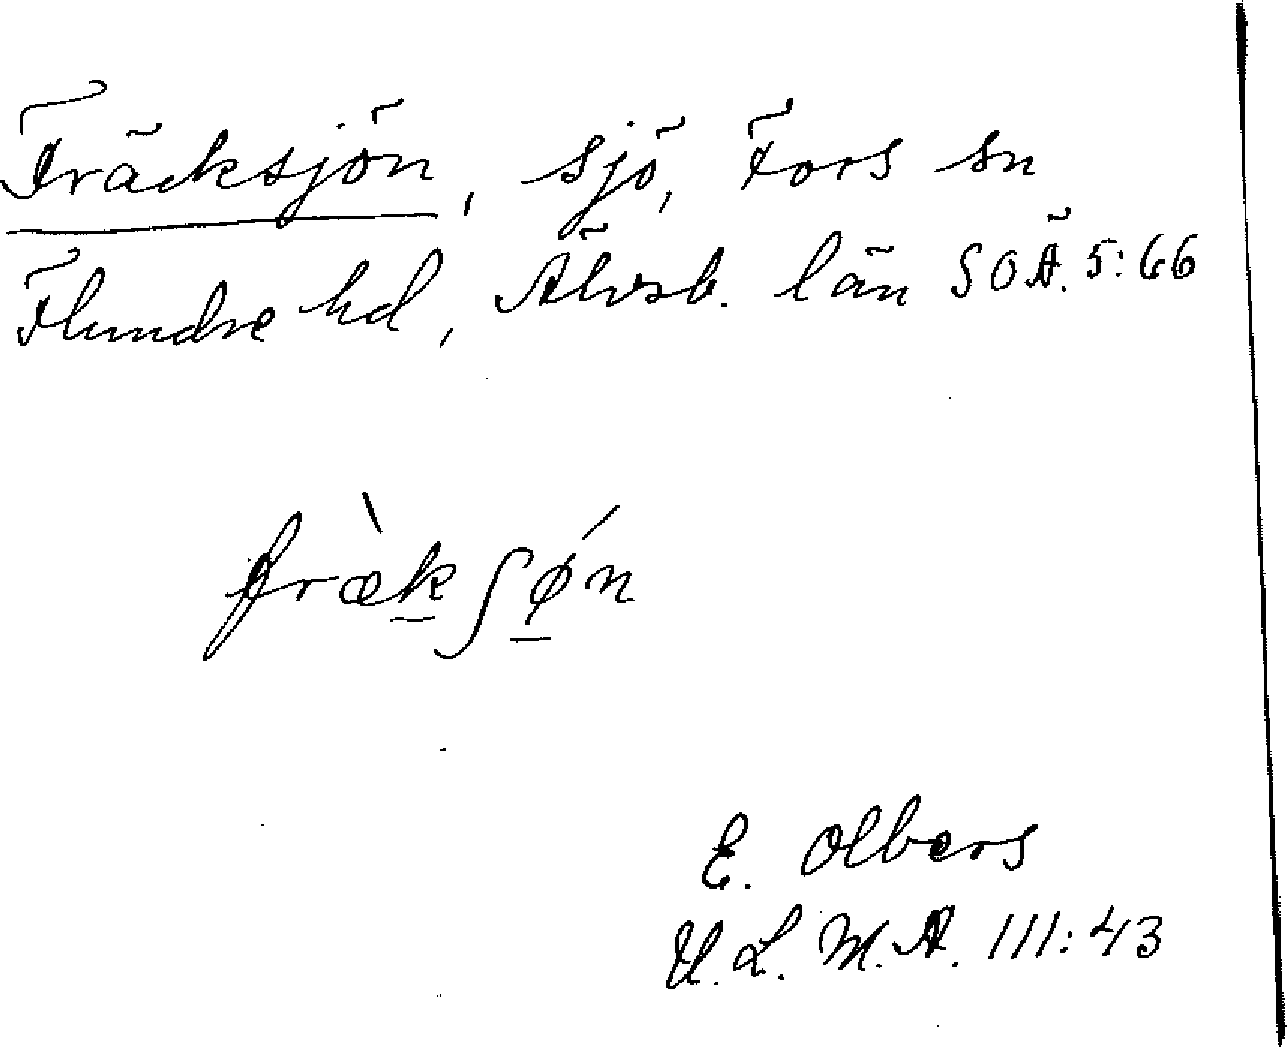 Fräcksjön, sjö, Fors sn
Flundre hd, Älvsb. län SOÄ. 5:66
fræ̀kʃǿn
E. Olbers
U.L.M.A. 111:43